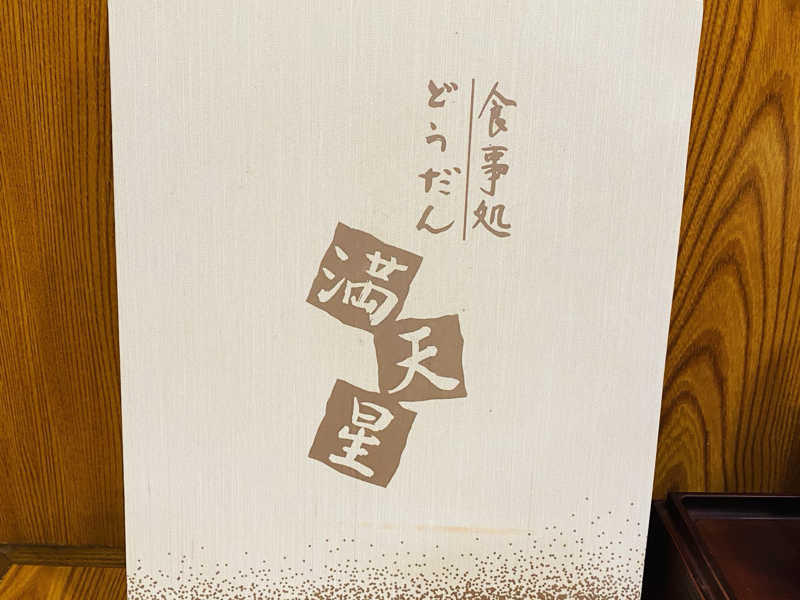 食事処
どうだん
満天星